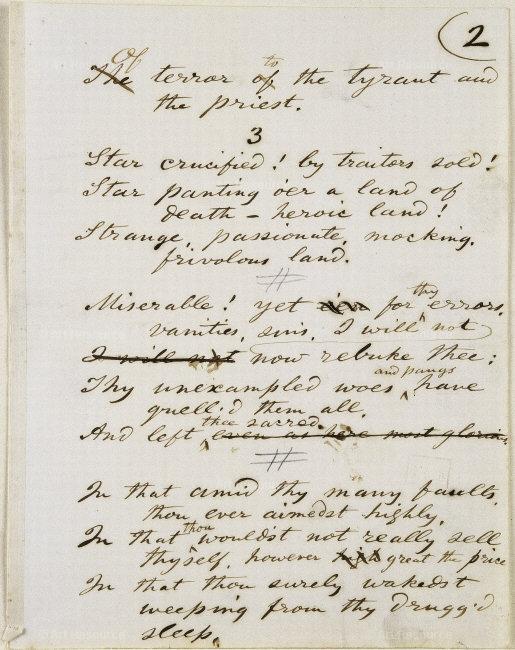 2
Of
The terror of to the tyrant and
the priest.
3
Star crucified! by traitors sold!
Star panting o'er a land of
death – heroic land!
Strange, passionate, mocking,
frivolous land.
Miserable! yet for thy errors,
vanities, sins, I will not
I will not now rebuke thee;
Thy unexampled woes and pangs have
quell'd them all,
And left thee sacred.
even as here most
In that amid thy many faults,
thou ever aimedst highly,
In that thou wouldst not really sell
thyself, however great the price
In that thou surely wakedst
weeping from thy drugg'd
sleep,